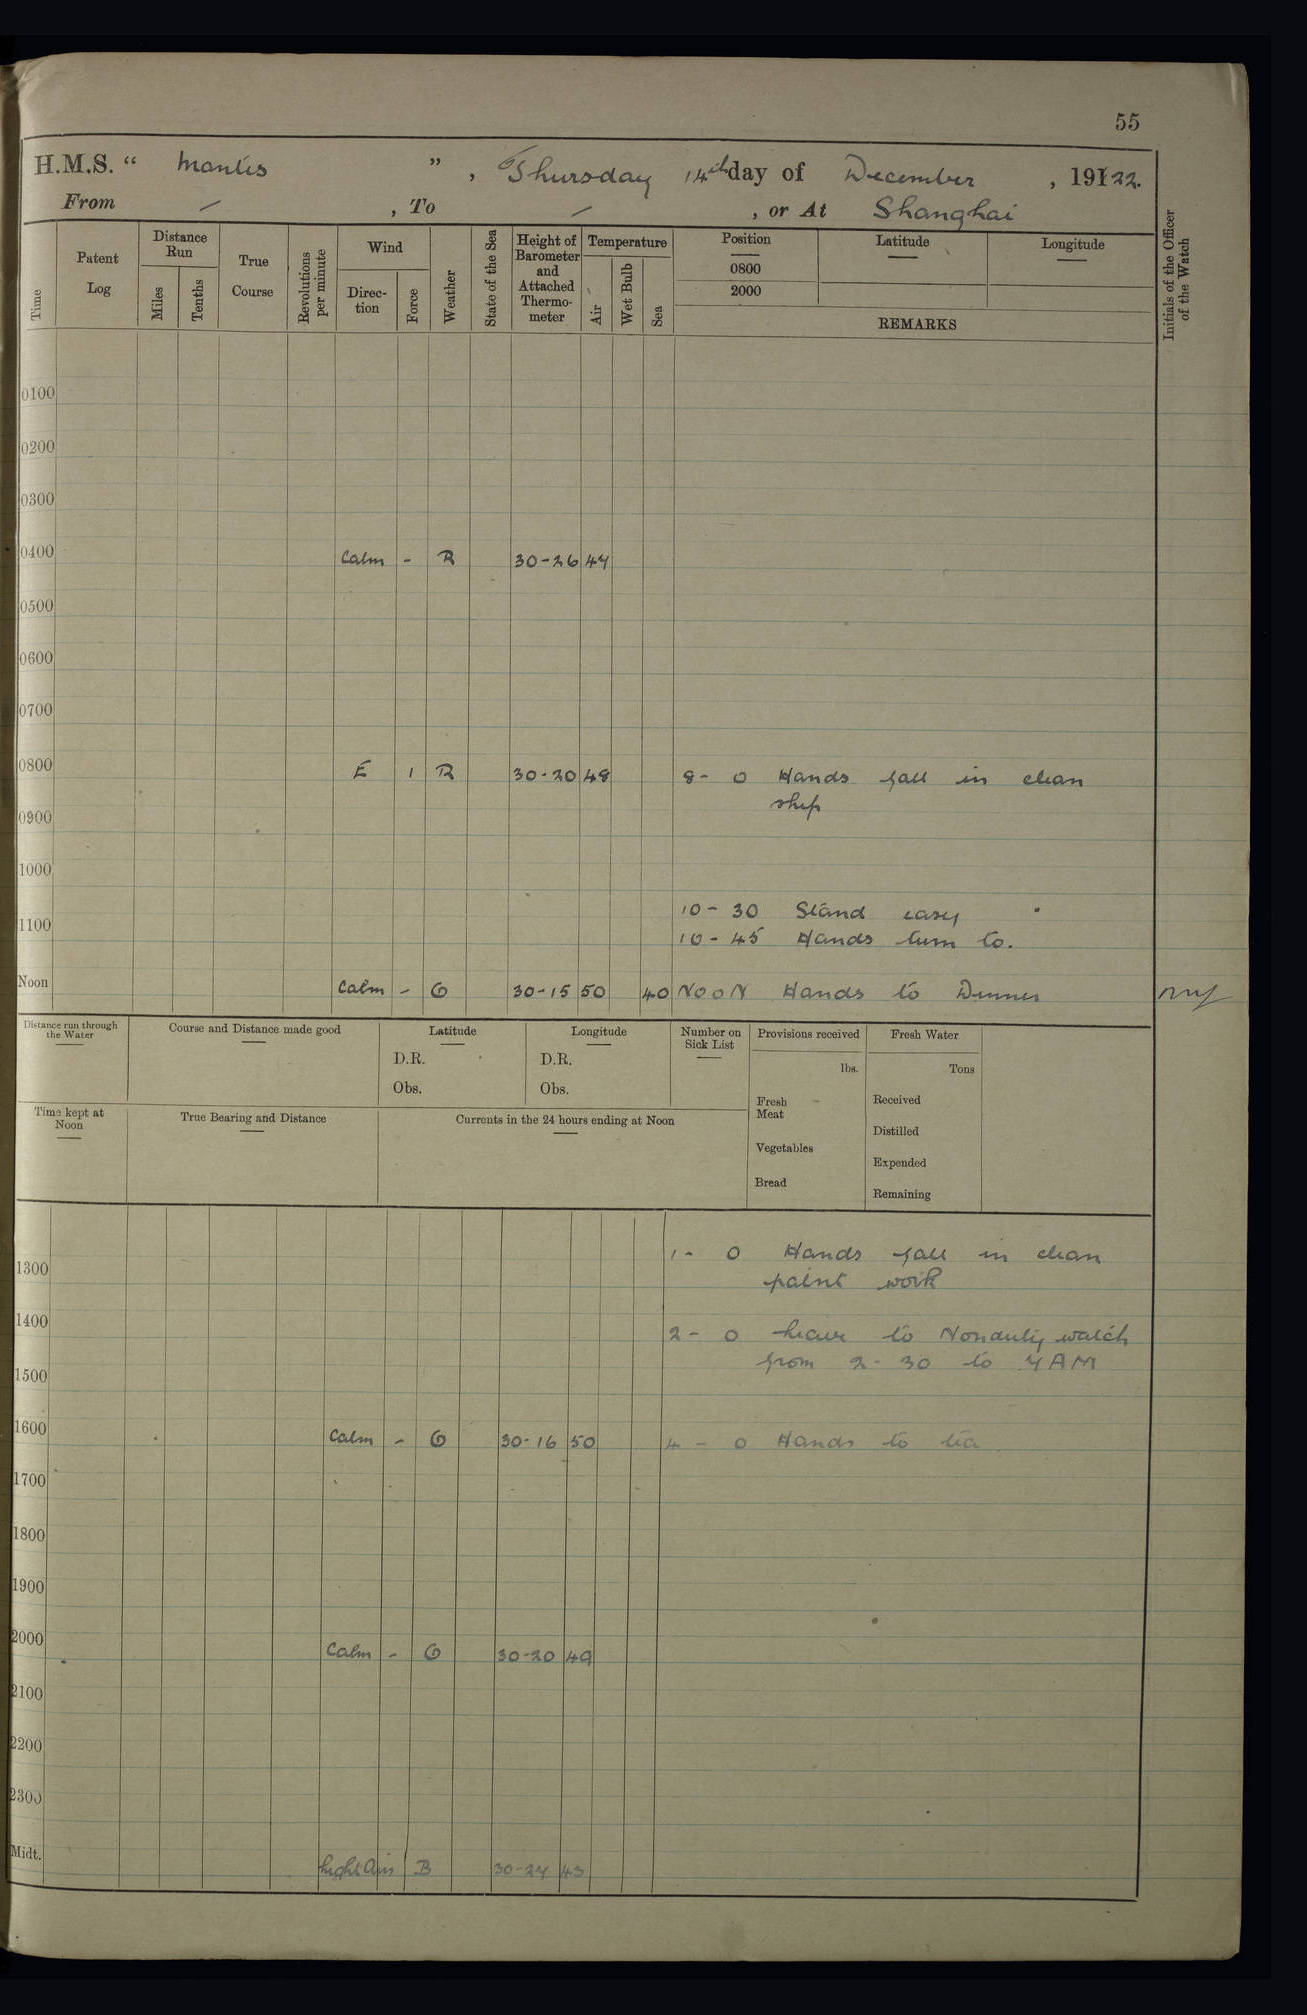 55
H.M.S. “ Mantis ” , Thursday 14th day of December , 19122.
From / , To / , or At Shanghai
Time
Patent Log
Distance Run
Miles
Tenths
True Course
Revolutions per minute
Wind
Direc-tion
Force
Weather
State of the Sea
Height of Barometer and Attached Thermo-meter
Temperature
Air
Wet Bulb
Sea
Position
0800
2000
Latitude
Longitude
REMARKS
Initials of the Officer of the Watch
0100
0200
0300
0400 Calm - R 30-26 47
0500
0600
0700
0800 E 1 R 30-20 48 8- 0 Hands fall in clean
ship
0900
1000
10- 30 Stand easy
1100
10- 45 Hands turn to.
Noon Calm - O 30-15 50 40 NOON Hands to Dinner
Distance run through the Water
Course and Distance made good
Latitude
D.R.
Obs.
Longitude
D.R.
Obs.
Number on Sick List
Provisions received
lbs.
Fresh Meat -
Vegetables
Bread
Fresh Water
Tons
Received
Distilled
Expended
Remaining
Time kept at Noon
True Bearing and Distance
Currents in the 24 hours ending at Noon
1- 0 Hands fall in clean
1300
paint work
1400
2- 0 leave to Nonduty watch
from 2- 30 to 7 AM
1500
1600 Calm - O 30-16 50 4 - 0 Hands to tea
1700
1800
1900
2000 Calm - O 30-20 49
2100
2200
2300
Midt. light Airs B 30-27 43